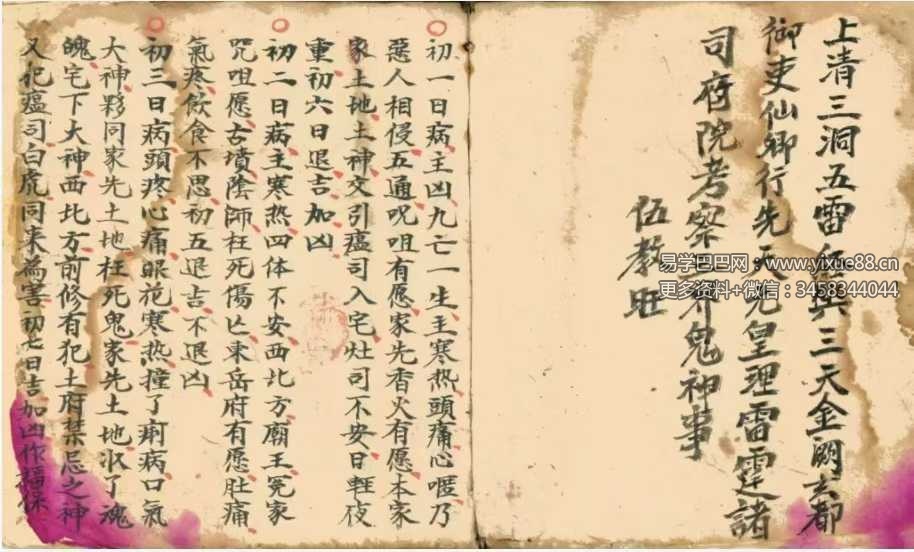 上清三洞五雷經籙三天金闕玄都
御吏仙卿行先天先皇理雷霆諸
司府院考察三界鬼神事
伍教旺
易学巴巴网：www.yixue88.cn
更多资料+微信：3458344044
初一日病主凶九亡一生主寒热頭痛心嘔乃
惡人相侵五通咒咀有愿家先香火有愿本家
家土地土神交引瘟司入宅灶司不安日輕夜
重初六日退吉加凶
初二日病主寒热四体不安西北方廟王冤家
咒咀愿古墳陰師枉死傷亡東岳府有愿肚痛
氣疼飲食不思初五退吉不退凶
初三日病頭疼心痛眼花寒热撞了痢病口氣
大神夥同家先土地枉死鬼家先土地收了魂
魄宅下大神西北方前修有犯土府禁忌之神
又犯瘟司白虎同来為害初七日吉加凶作福保